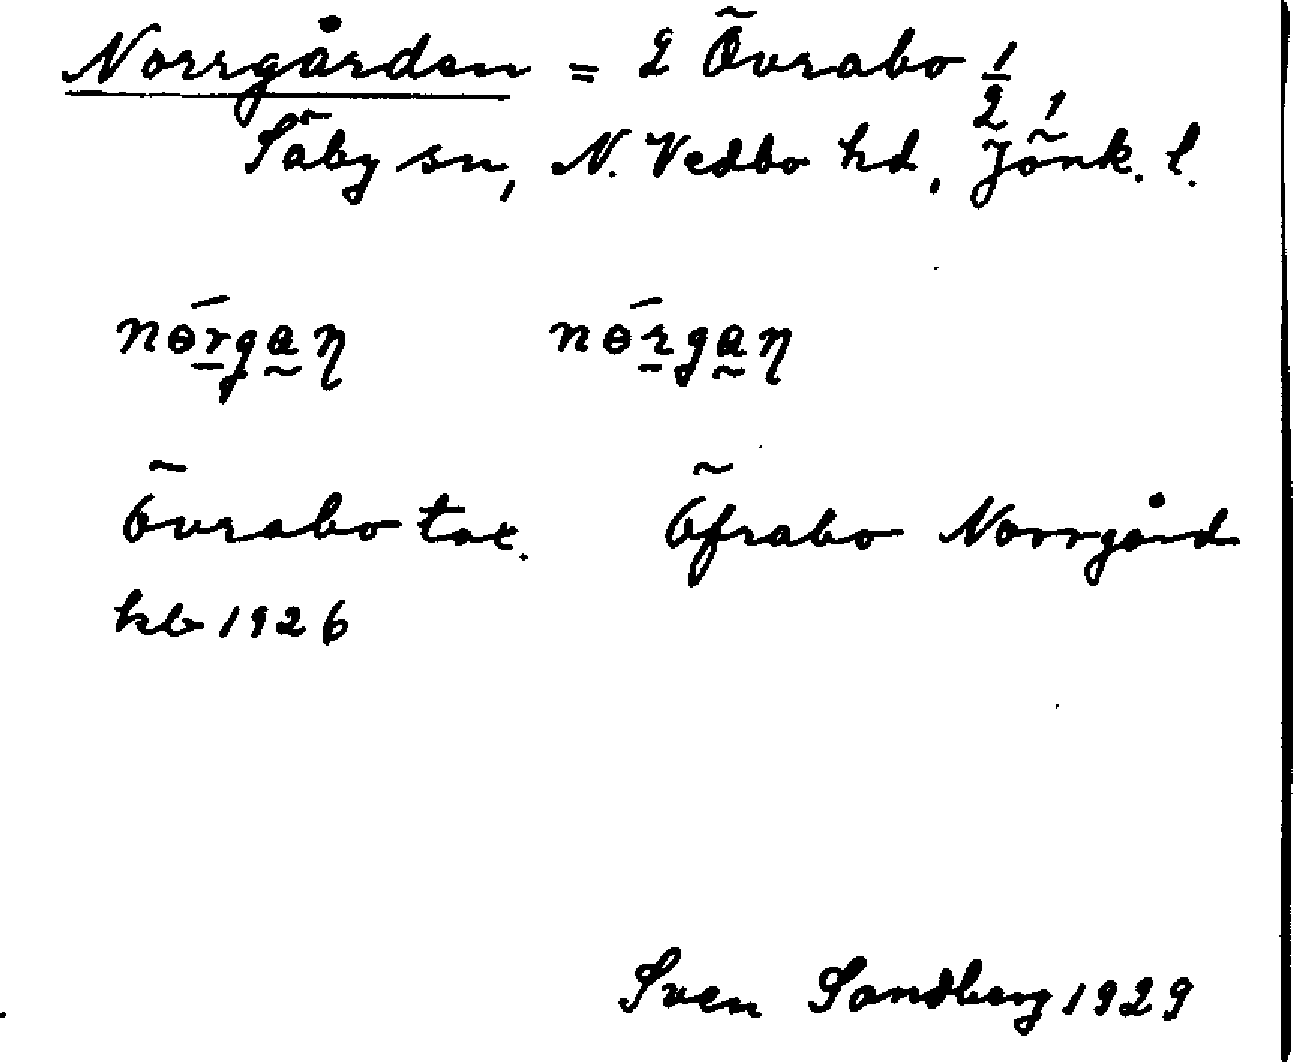 Norrgården = 2 Övrabo 1/2 1
Säby sn, N. Vedbo hd, Jönk. l.
nɵ́rgan̥ nɵ́rgan̥
Övrabo tax. Öfrabo Norrgård
kb 1926
Sven Sandberg 1929